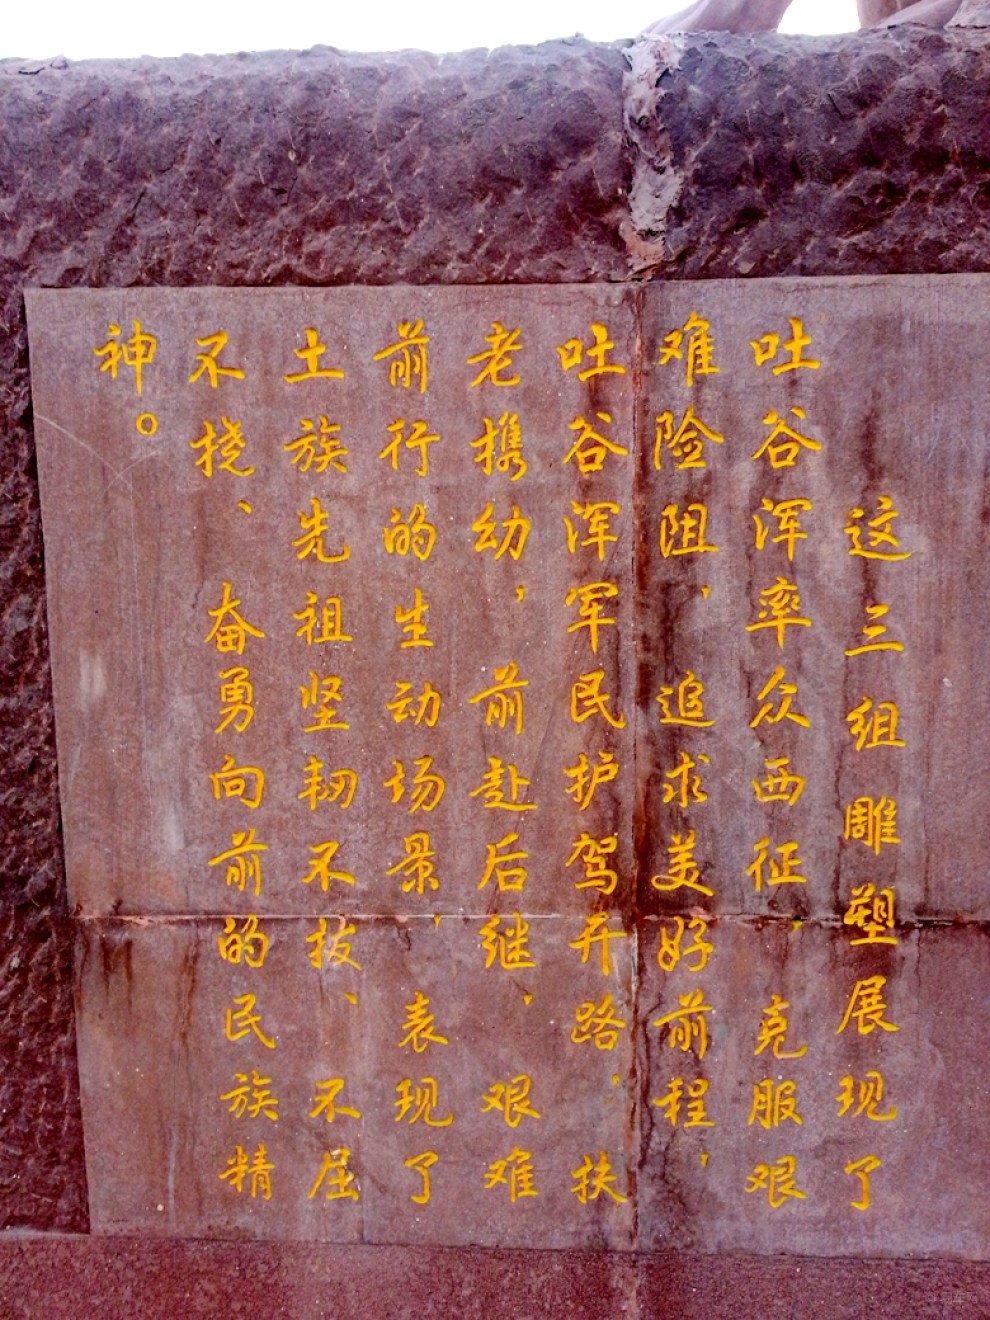 这三组雕塑展现了
吐谷浑率众西征，克服艰
难险阻，追求美好前程，
吐谷浑军民护驾开路，扶
老携幼，前赴后继，艰难
前行的生动场景，表现了
土族先祖坚韧不拔、不屈
不挠、奋勇向前的民族精
神。